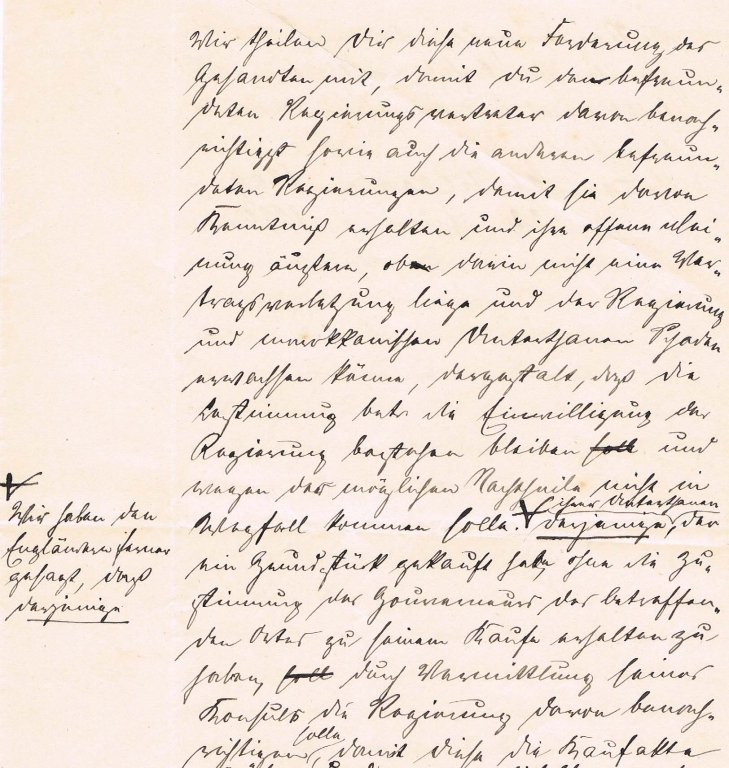 Wir theilen Dir diese neue Forderung des
Gesandten mit, damit du den befreun-
deten Regierungsvertreter davon benach-
richtigst sowie auch die anderen befreun-
deten Regierungen, damit sie davon
Kenntniß erhalten und ihre offene Mei-
nung äußern, ob darin nicht eine Ver-
tragsverletzung liege und der Regierung
und marokkanischen Unterthanen Schaden
erwachsen könne, dergestalt, daß die
Bestimmung betr. die Einwilligung der
Regierung bestehen bleiben soll und
wegen der möglichen Nachtheile nicht in
Wegfall kommen solle. derjenige ihrer Unterthanen, der
ein Grundstück gekauft habe, ohne die Zu-
stimmung des Gouverneurs des betreffen-
den Ortes zu seinem Kaufe erhalten zu
haben, soll durch Vermittlung seines
Konsuls die Regierung davon benach-
richtigen solle, damit diese die Kaufakte
Wir haben den
Engländern ferner
gesagt, daß
derjenige